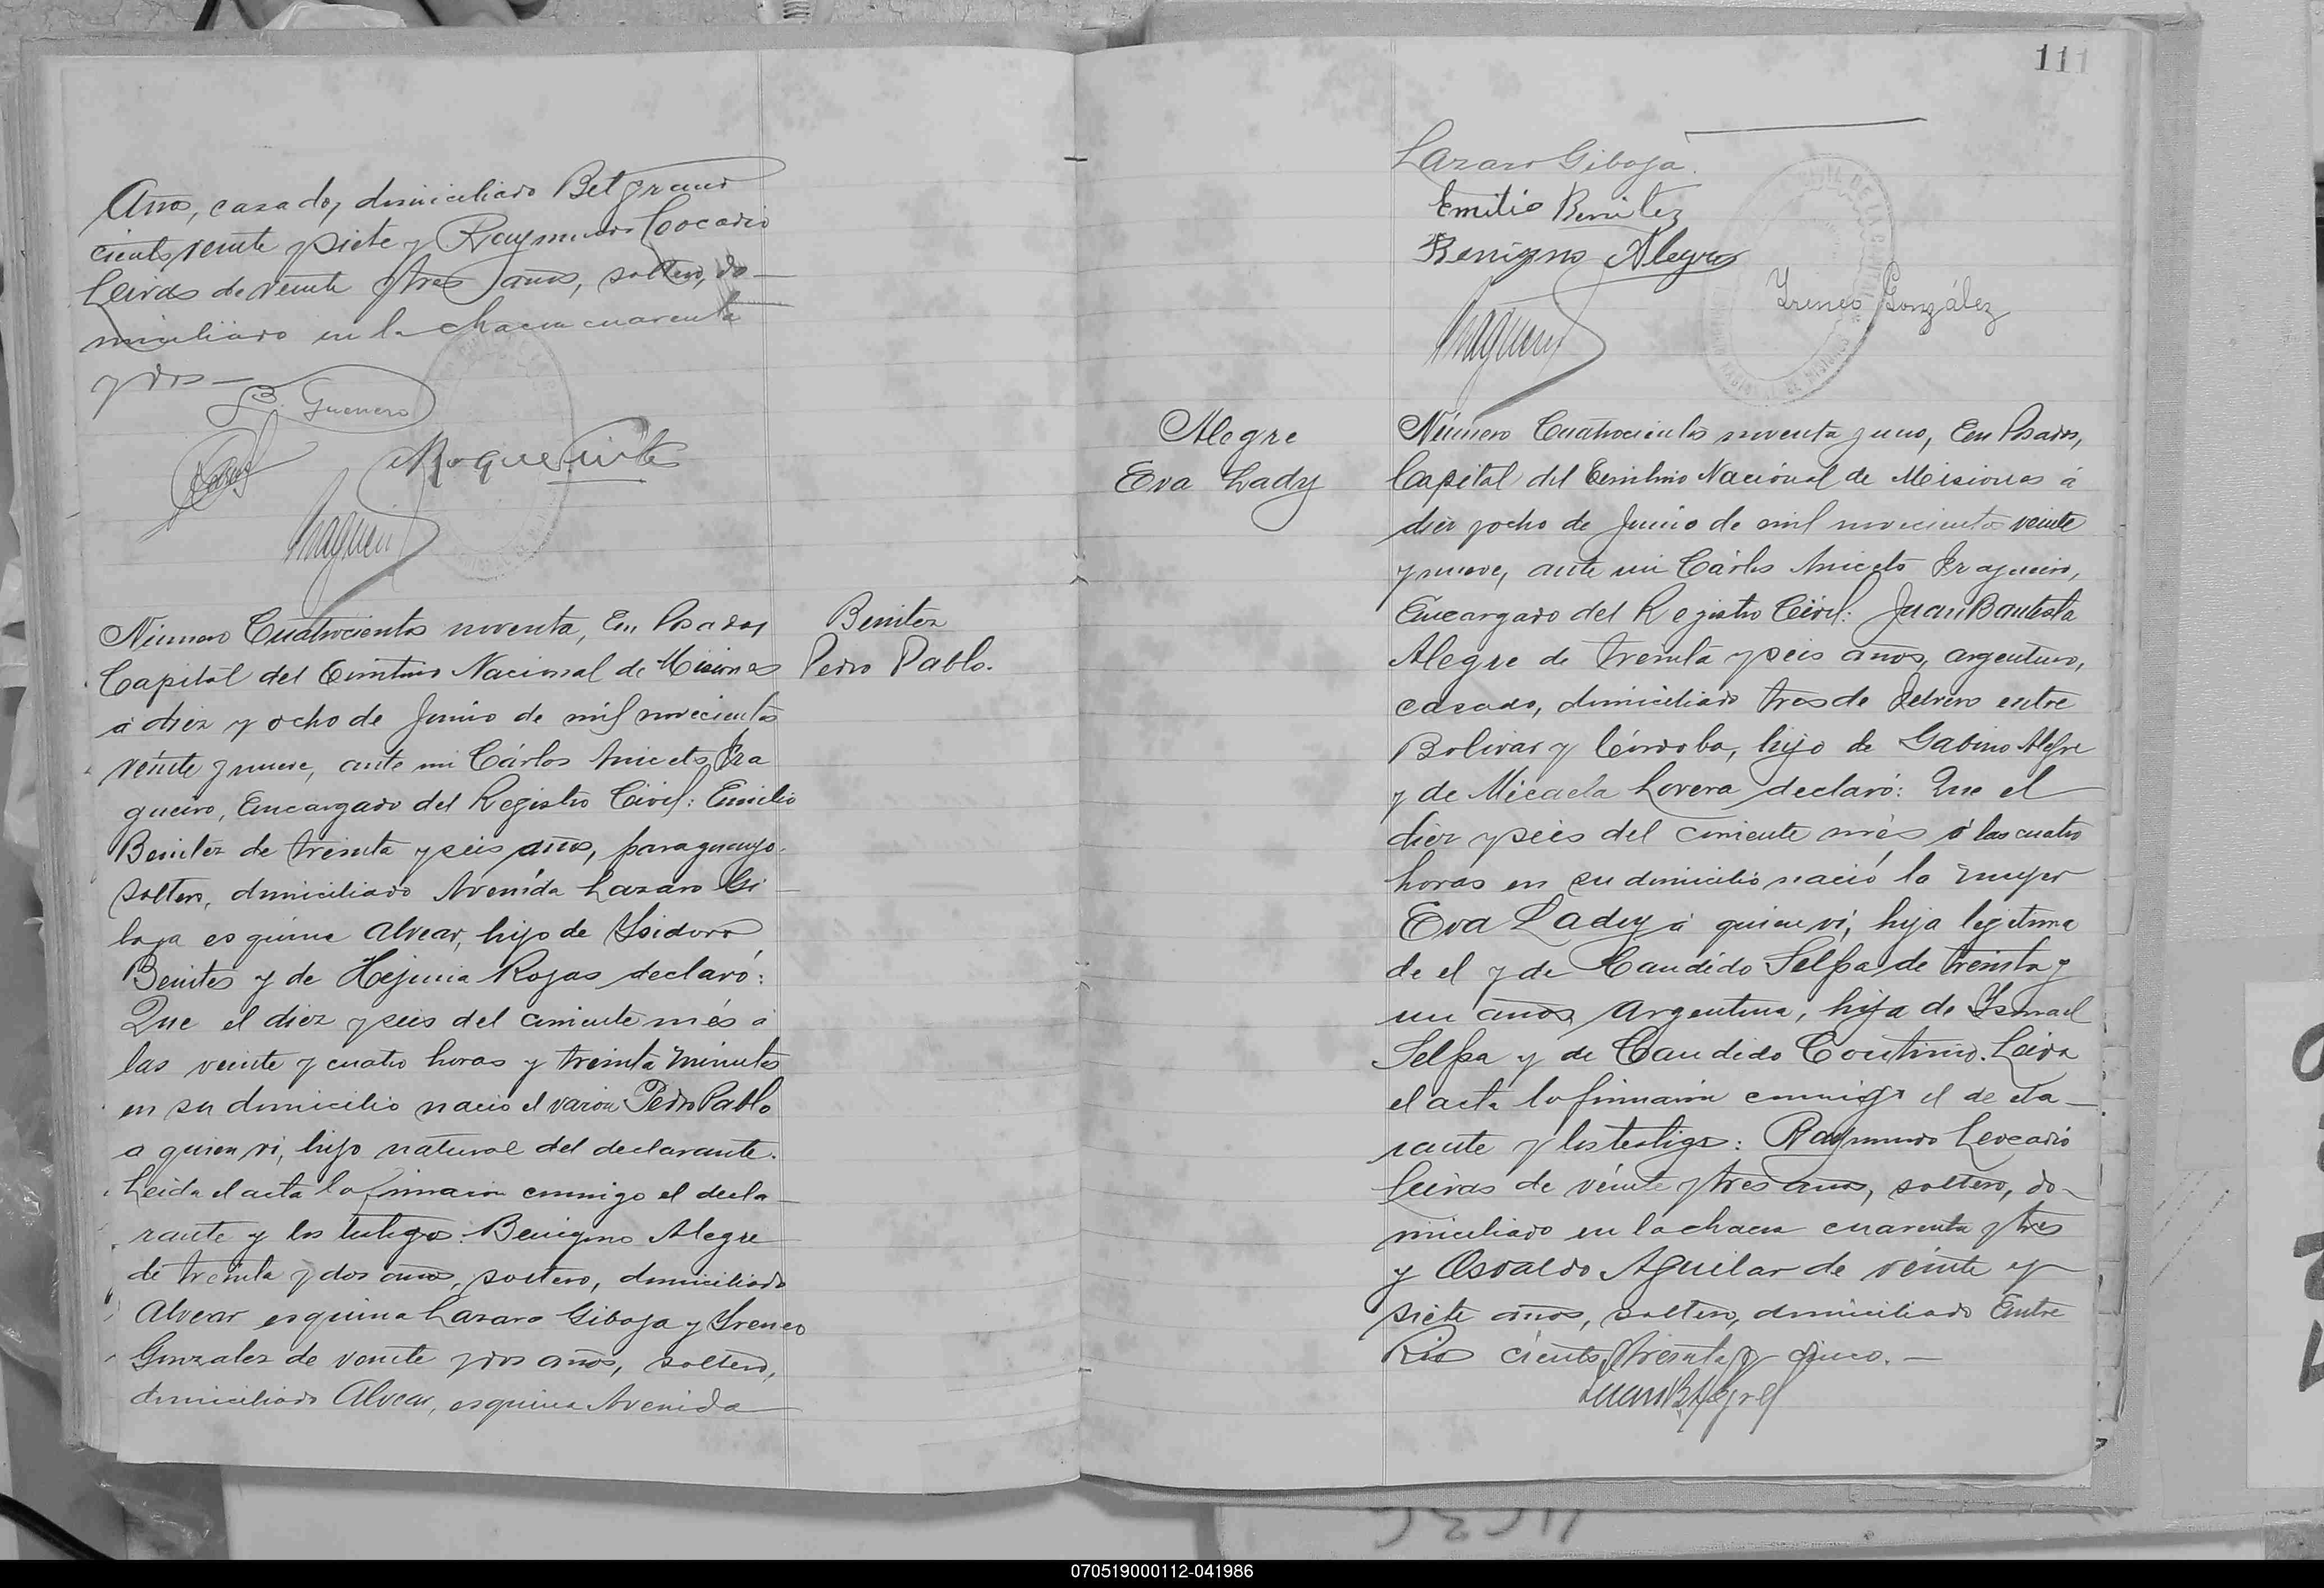 Años, casado, domiciliado Belgrano
ciento veinte y siete y Raymundo Leocadio
Leivas de veinte y tres años, soltero, do-
miciliado en la chacra cuarenta
y dos—
B. Guerrero
Roque
Fragueiro
Número Cuatrocientos noventa, En Posadas,
Capital del Territorio Nacional de Misiones
á diez y ocho de Junio de mil novecientos
veinte y nueve, ante mi Cárlos Aniceto Fra
gueiro, Encargado del Registro Civil: Emilio
Benitez de treinta y seis años, paraguayo.
soltero, domiciliado Avenida Lazaro Gi-
baja esquina Alvear, hijo de Ysidoro
Benites y de Rojas declaró:
Que el diez y seis del corriente més á
las veinte y cuatro horas y treinta minutos
en su domicilio nació el varon Pedro Pablo
a quien vi, hijo natural del declarante.
Leida el acta la firmaron conmigo el decla-
rante y los testigos: Benigno Alegre
de treinta y dos años, soltero, domiciliado
Alvear esquina Lazaro Giboja y Yreneo
Gonzalez de veinte y dos años, soltero,
domiciliado Alvear, esquina Avenida
Benitez
Pedro Pablo.
111
Lazaro Giboja.
Emilio Benitez
Benigno Alegre
Yreneo González
Fragueiro
Alegre
Eva Lady
Número Cuatrocientos noventa y uno, En Posadas,
Capital del Territorio Nacional de Misiones á
diez y ocho de Junio de mil novecientos veinte
y nueve, ante mi Cárlos Aniceto Fragueiro,
Encargado del Registro Civil: Juan Bautista
Alegre de treinta y seis años, argentino,
casado, domiciliado tres de Febrero entre
Bolivar y Córdoba, hijo de Gabino Alegre
y de Micaela Lovera declaró: Que el
diez y seis del corriente més á las cuatro
horas en su domicilio nació la mujer
Eva Lady á quien vi, hija legitima
de el y de Candido Selpa de treinta y
un años, Argentina, hija de Ysmael
Selpa y de Candido Coutinio. Leida
el acta la firmaron conmigo el decla-
rante y los testigos: Raymundo Leocadio
Leivas de veinte y tres años, soltero, do-
miciliado en la chacra cuarenta y tres
y Osvaldo Aguilar de veinte y
siete años, soltero, domiciliado Entre
Rios ciento treinta y cinco.—
Juan B Alegre
070519000112-041986